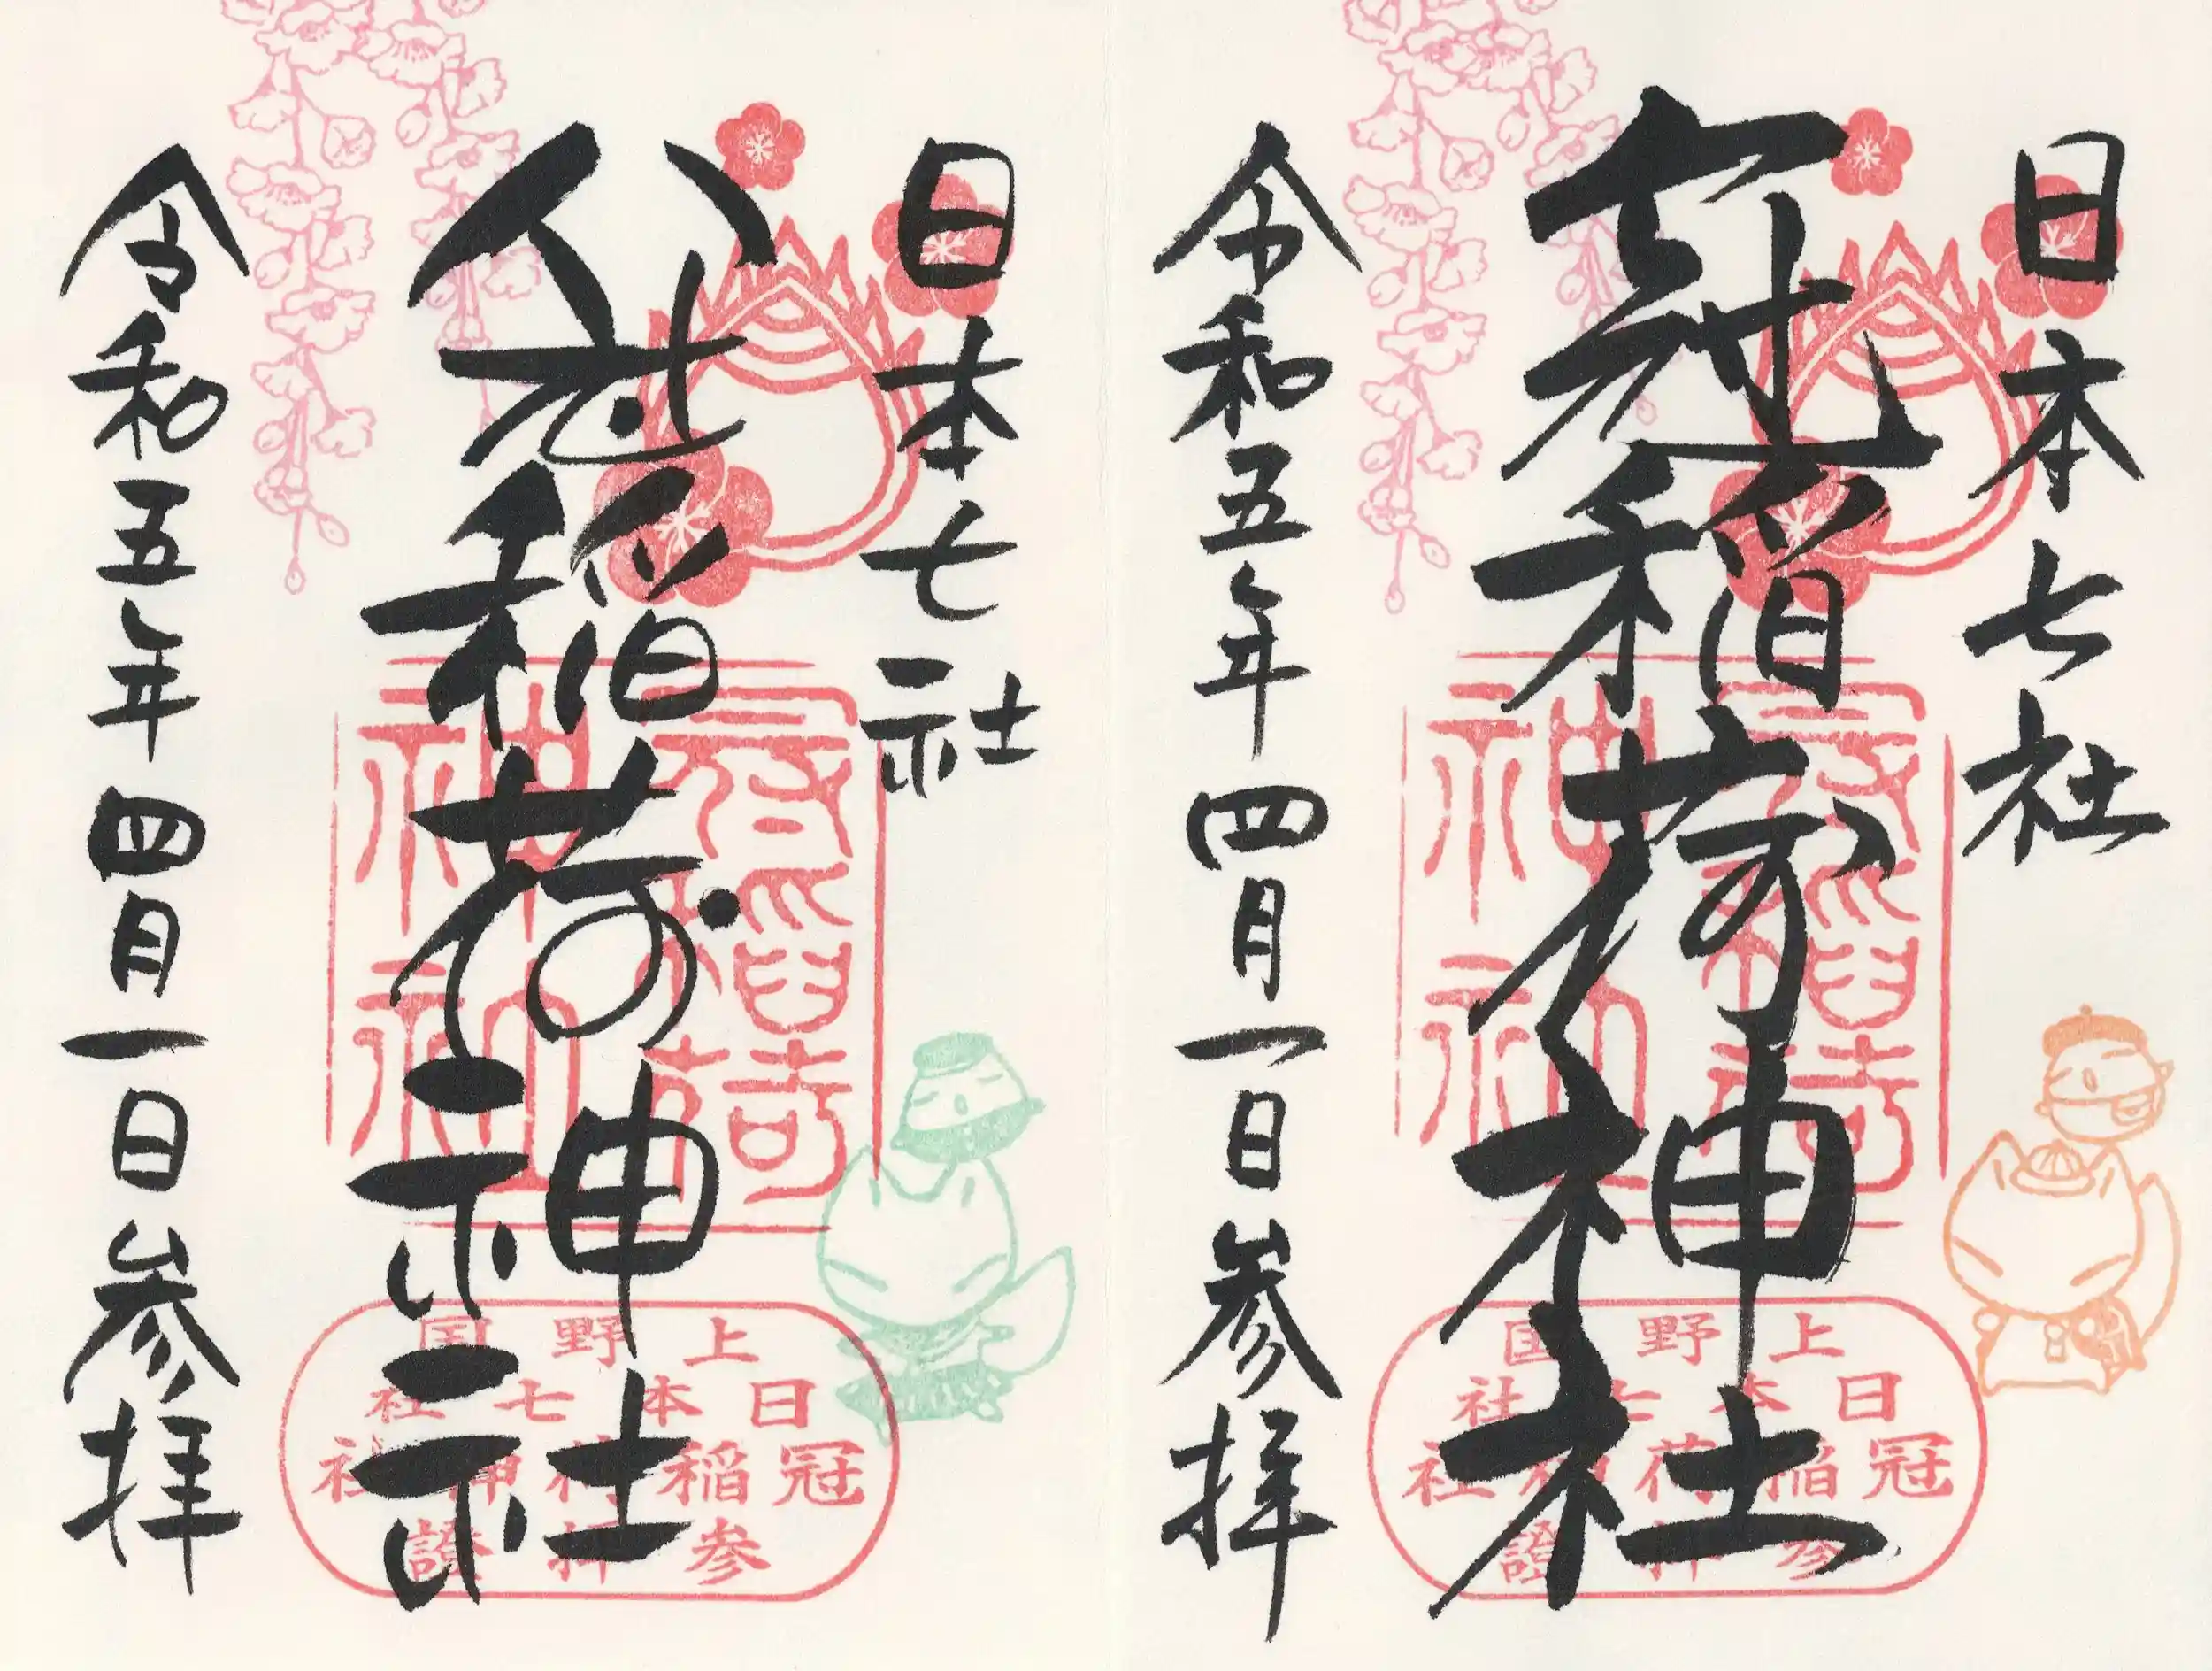 日本七社
冠稲荷神社
令和五年四月一日参拝
冠稲荷
神社
上野国
日本七社
冠稲荷神社
参拝證
日本七社
冠稲荷神社
令和五年四月一日参拝
冠稲荷
神社
上野国
日本七社
冠稲荷神社
参拝證